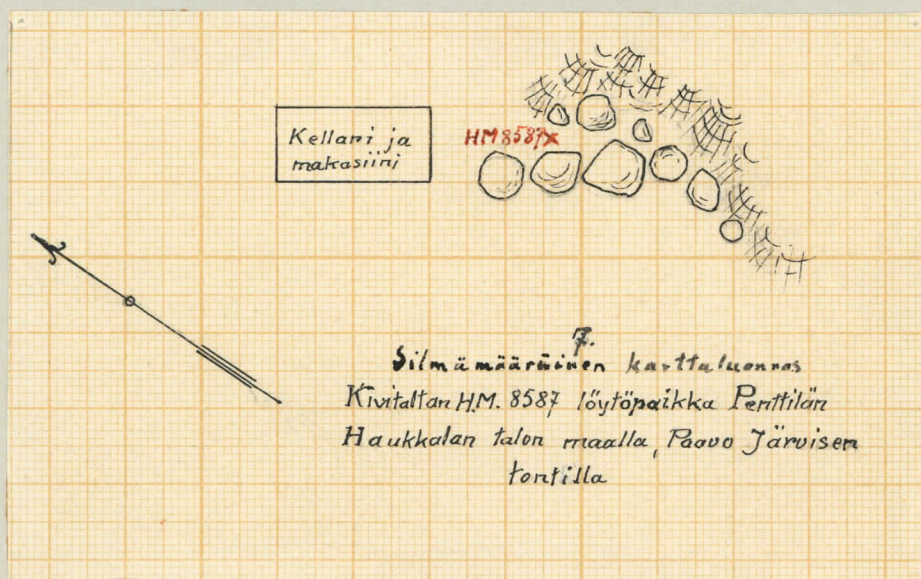 Kellari ja
makasiini
HM 8587x
7.
Silmämääräinen karttaluonnos
Kivitaltan H.M. 8587 löytöpaikka Penttilän
Haukkalan talon maalla, Paavo Järvisen
tontilla